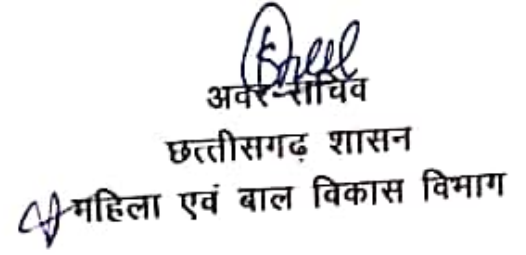 अवर-सचिव
छत्तीसगढ़ शासन
महिला एवं बाल विकास विभाग